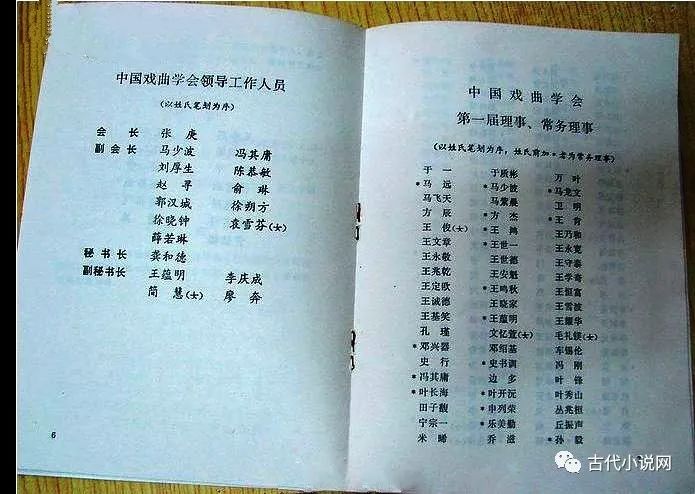 中国戏曲学会领导工作人员
(以姓氏笔划为序)
会 长 张 庚
副会长 马少波 冯其庸
刘厚生 陈恭敏
赵 寻 俞 琳
郭汉城 徐朔方
徐晓钟 袁雪芬(女)
薛若琳
秘书长 龚和德
副秘书长 王蕴明 李庆成
简 慧(女) 廖 奔
6
中国戏曲学会
第一届理事、常务理事
(以姓氏笔划为序,姓氏前加*者为常务理事)
于 一 于质彬 万 叶
*马 远 *马少波 *马龙文
马飞天 马紫晨 卫 明
方 辰 *方 杰 *王 肯
王 俊(女) *王 鸿 王乃和
王文章 *王世一 王永宽
王永敬 王世德 王守泰
王兆乾 王安魁 王学奇
王定欧 *王鸣秋 王恒富
王诚德 王晓家 王雪波
王基笑 *王蕴明 王耀华
孔 瑾 文忆萱(女) 毛礼镁(女)
*邓兴器 邓绍基 车锡伦
史 行 *史书训 冯 刚
*冯其庸 边 多 叶 锋
*叶长海 *叶开沅 叶秀山
田子馥 *申列荣 丛兆桓
宁宗一 *乐美勤 丘振声
米 晞 乔 滋 *孙 毅
古代小说网